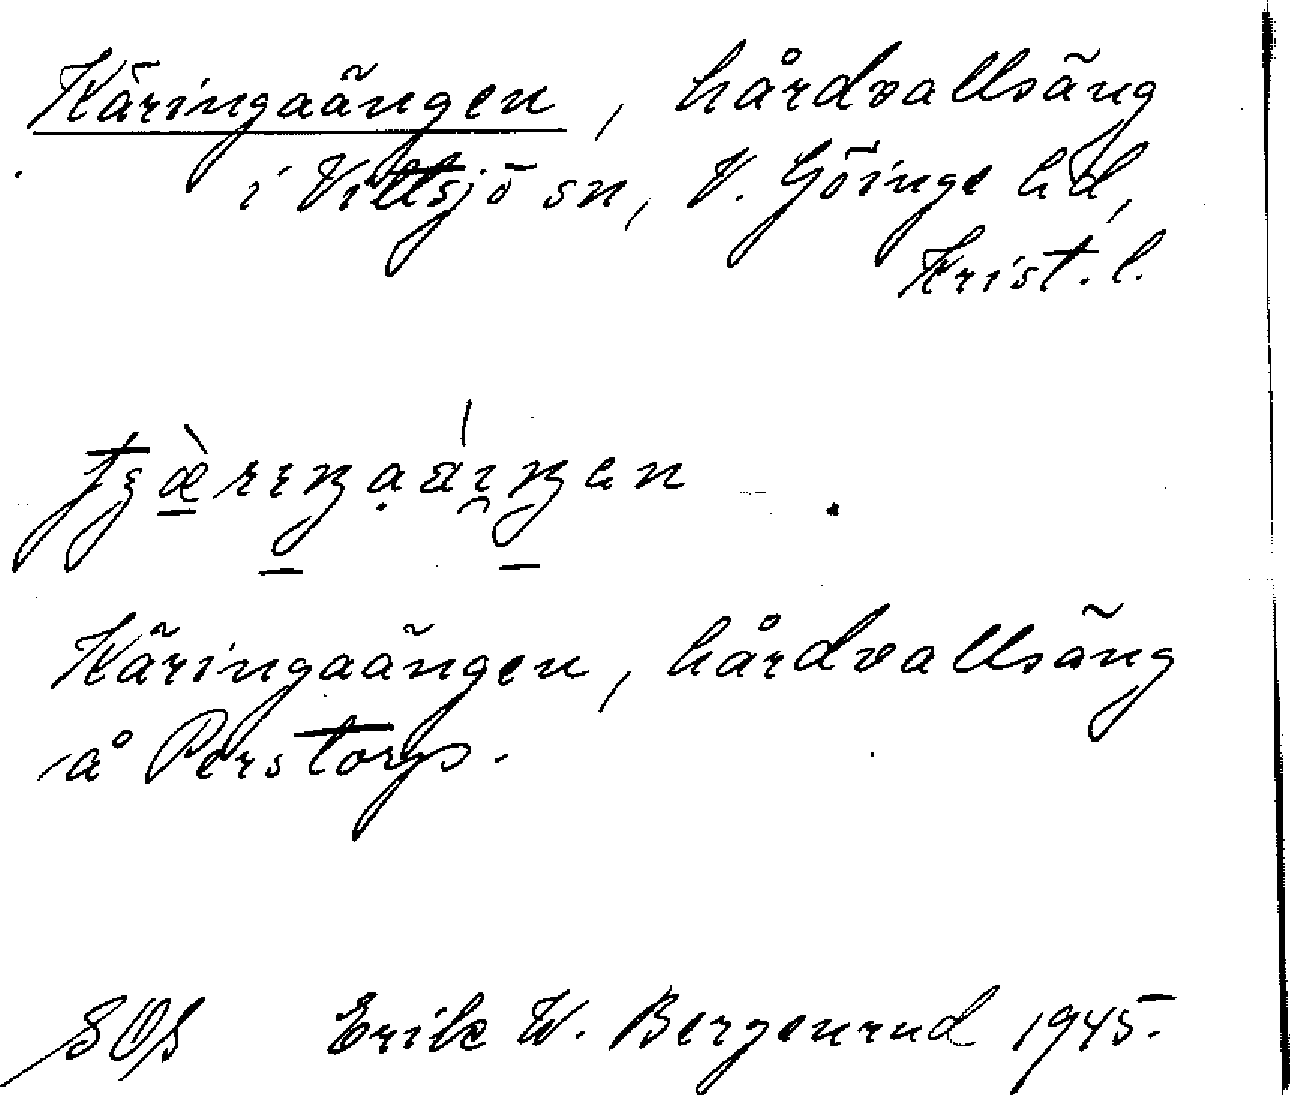 Käringaängen, hårdvallsäng
i Vittsjö sn, V. Göinge hd,
Krist. l.
Käringaängen, hårdvallsäng
å Perstorp.
SOS Erik W. Bergenrud 1945.